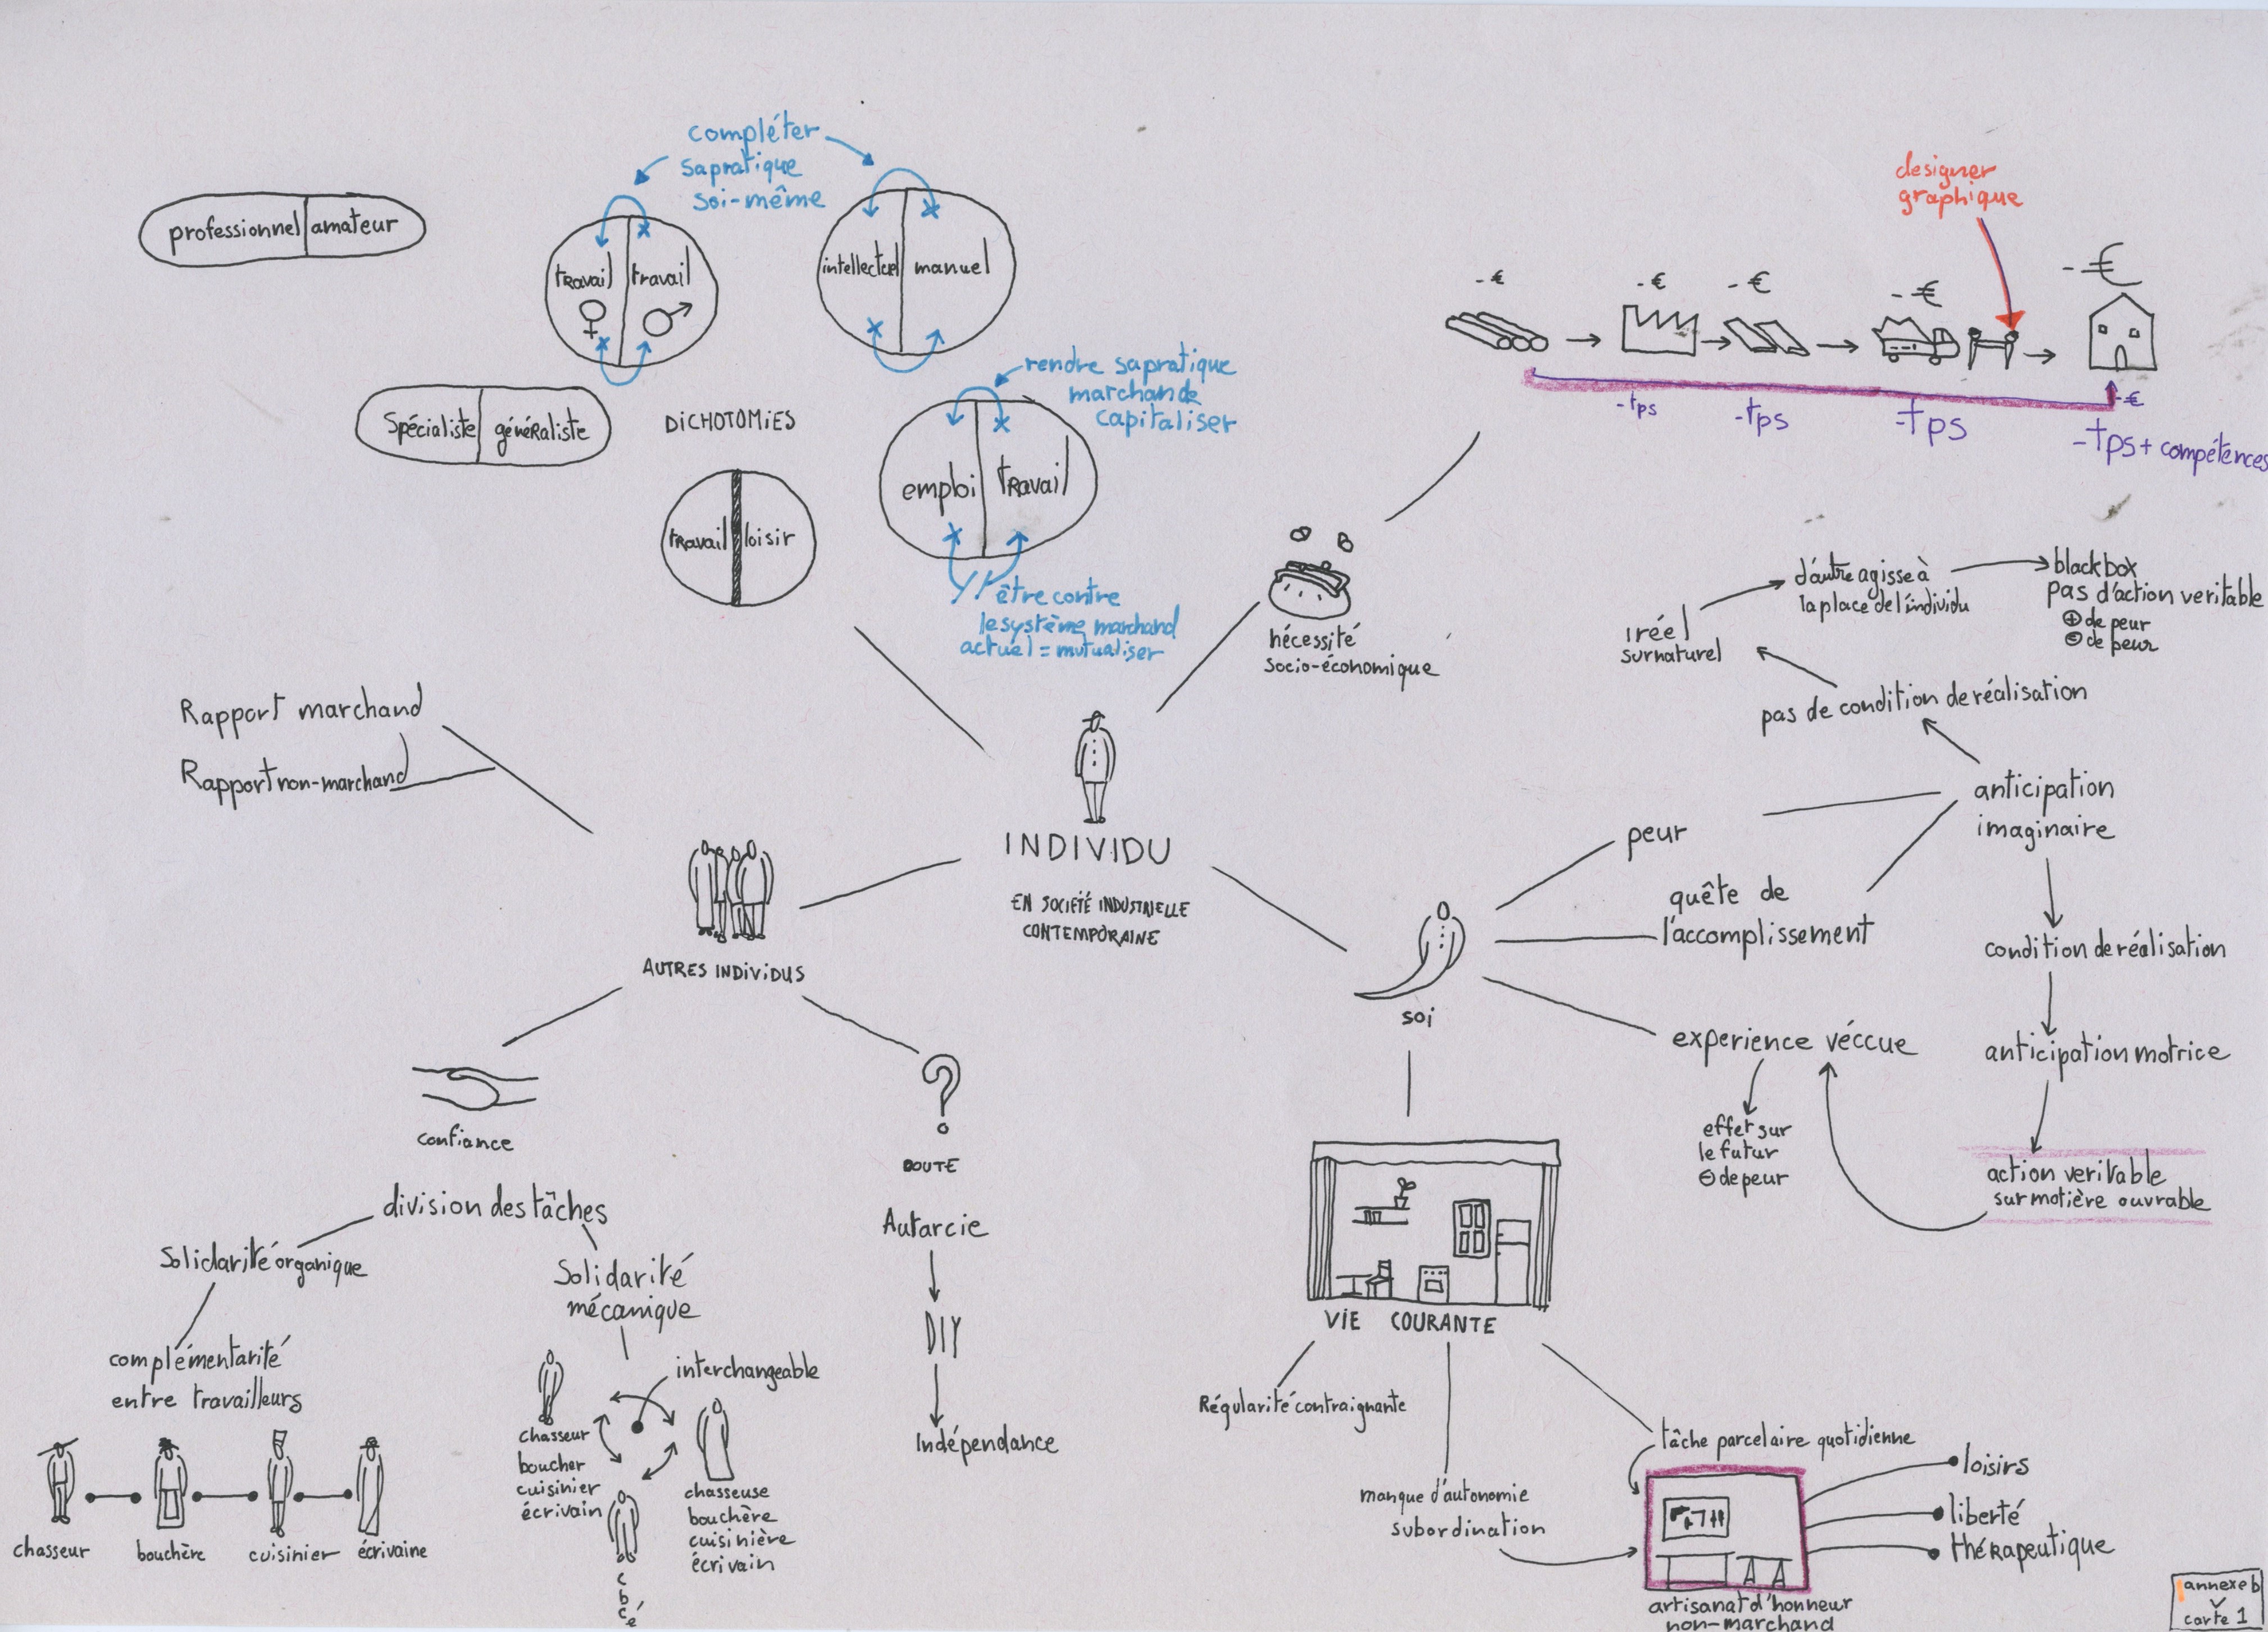 compléter
sa pratique
soi-même
professionnel amateur
travail travail
intellectuel manuel
rendre sa pratique
marchande
capitaliser
spécialiste généraliste
DICHOTOMIES
emploi travail
travail loisir
être contre
le système marchand
actuel = mutualiser
designer
graphique
- €
- €
- €
- €
- €
- €
- tps
- tps
- tps
- tps + compétences
nécessité
socio-économique
d'autre agisse à
la place de l'individu
blackbox
pas d'action veritable
⊕ de peur
⊖ de peur
iréel
surnaturel
pas de condition de réalisation
anticipation
imaginaire
condition de réalisation
anticipation motrice
action veritable
sur matière ouvrable
Rapport marchand
Rapport non-marchand
INDIVIDU
EN SOCIÉTÉ INDUSTRIELLE
CONTEMPORAINE
AUTRES INDIVIDUS
peur
quête de
l'accomplissement
soi
experience véccue
effet sur
le futur
⊖ de peur
confiance
?
DOUTE
division des tâches
Solidarité organique
Solidarité
mécanique
complémentarité
entre travailleurs
chasseur
bouchère
cuisinier
écrivaine
interchangeable
chasseur
boucher
cuisinier
écrivain
chasseuse
bouchère
cuisinière
écrivain
c
b
c
é
Autarcie
DIY
Indépendance
VIE COURANTE
Régularité contraignante
manque d'autonomie
subordination
tâche parcelaire quotidienne
loisirs
liberté
thérapeutique
artisanat d'honneur
non-marchand
annexe b
carte 1